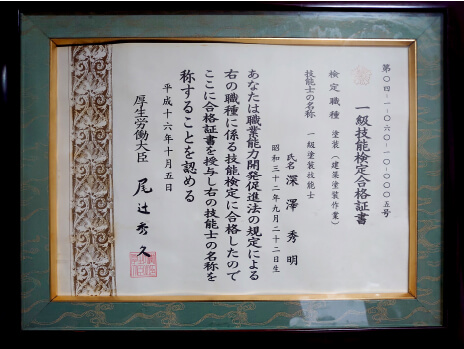 第〇四-一-〇六〇-一〇-〇〇〇五号
一級技能検定合格証書
検定職種 塗装(建築塗装作業)
技能士の名称 一級塗装技能士
氏名 深澤 秀明
昭和三十二年九月二十二日生
あなたは職業能力開発促進法の規定による
右の職種に係る技能検定に合格したので
ここに合格証書を授与し右の技能士の名称を
称することを認める
平成十六年十月五日
厚生労働大臣 尾辻秀久